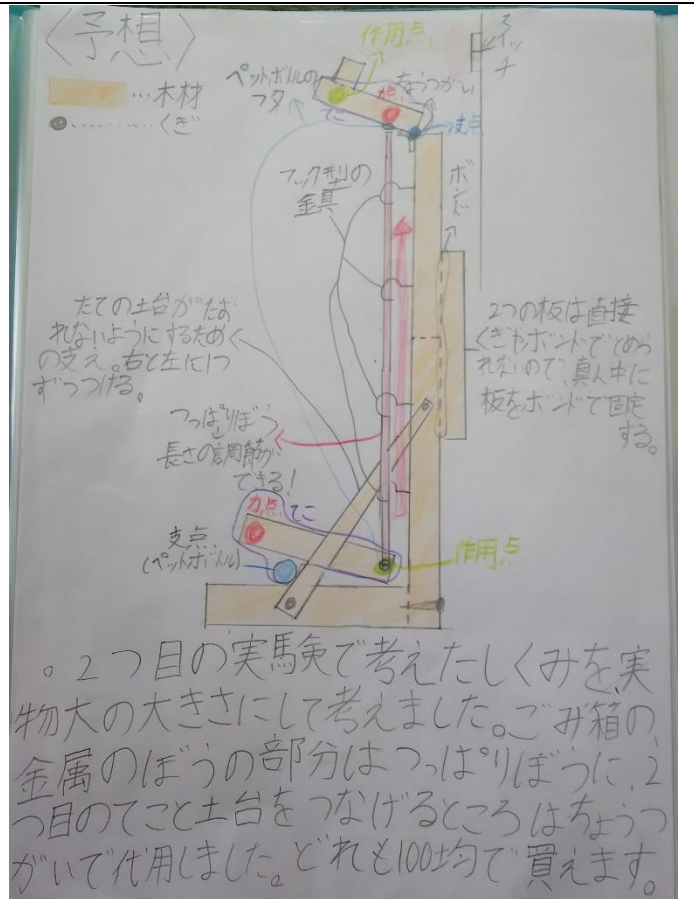 〈予想〉
…木材
………くぎ
作用点
スイッチ
ペットボトルの
フタ
力点
ちょうつがい
てこ
支点
フック型の
金具
ボンド
たての土台がたお
れないようにするため
の支え。右と左に1つ
ずつつける。
2つの板は直接
くぎやボンドでとめら
れないので、真ん中に
板をボンドで固定
する。
つっぱりぼう
長さの調節が
できる!
力点
てこ
支点
(ペットボトル)
作用点
。2つ目の実験で考えたしくみを、実
物大の大きさにして考えました。ごみ箱の、
金属のぼうの部分はつっぱりぼうに、2
つ目のてこと土台をつなげるところはちょうつ
がいで代用しました。どれも100均で買えます。